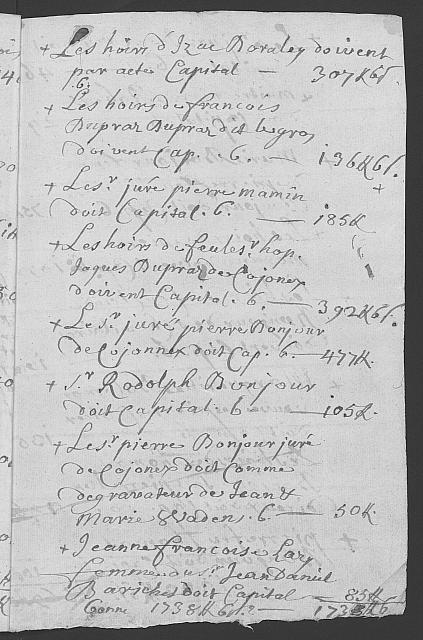 + Les hoirs d'Izac Boraley doivent
par acte Capital — 307ft 6s.
.6.
+ Les hoirs de francois
Dupraz Dupraz dit legros
doivent Cap. 6. — 136ft 6s.
+
+ Le sr. juré pierre mamin
doit Capital. 6. — 185ft.
+ Les hoirs de feu le sr. hop.
Jaques Dupraz de Cojonex
doivent Capital. 6. — 392ft 6s.
+ Le sr. juré pierre Bonjour
de Cojonnex doit Cap. 6. — 477ft.
+ sr. Rodolph Bonjour
doit Capital. 6 — 105ft.
+ Le sr. pierre Bonjour juré
de Cojonex doit Comme
degravateur de Jean &
Marie Wadens. 6. — 50ft.
+ Jeanne francoise
femme du sr. Jean Daniel
doit Capital 85ft
bonne 1738ft 6s.